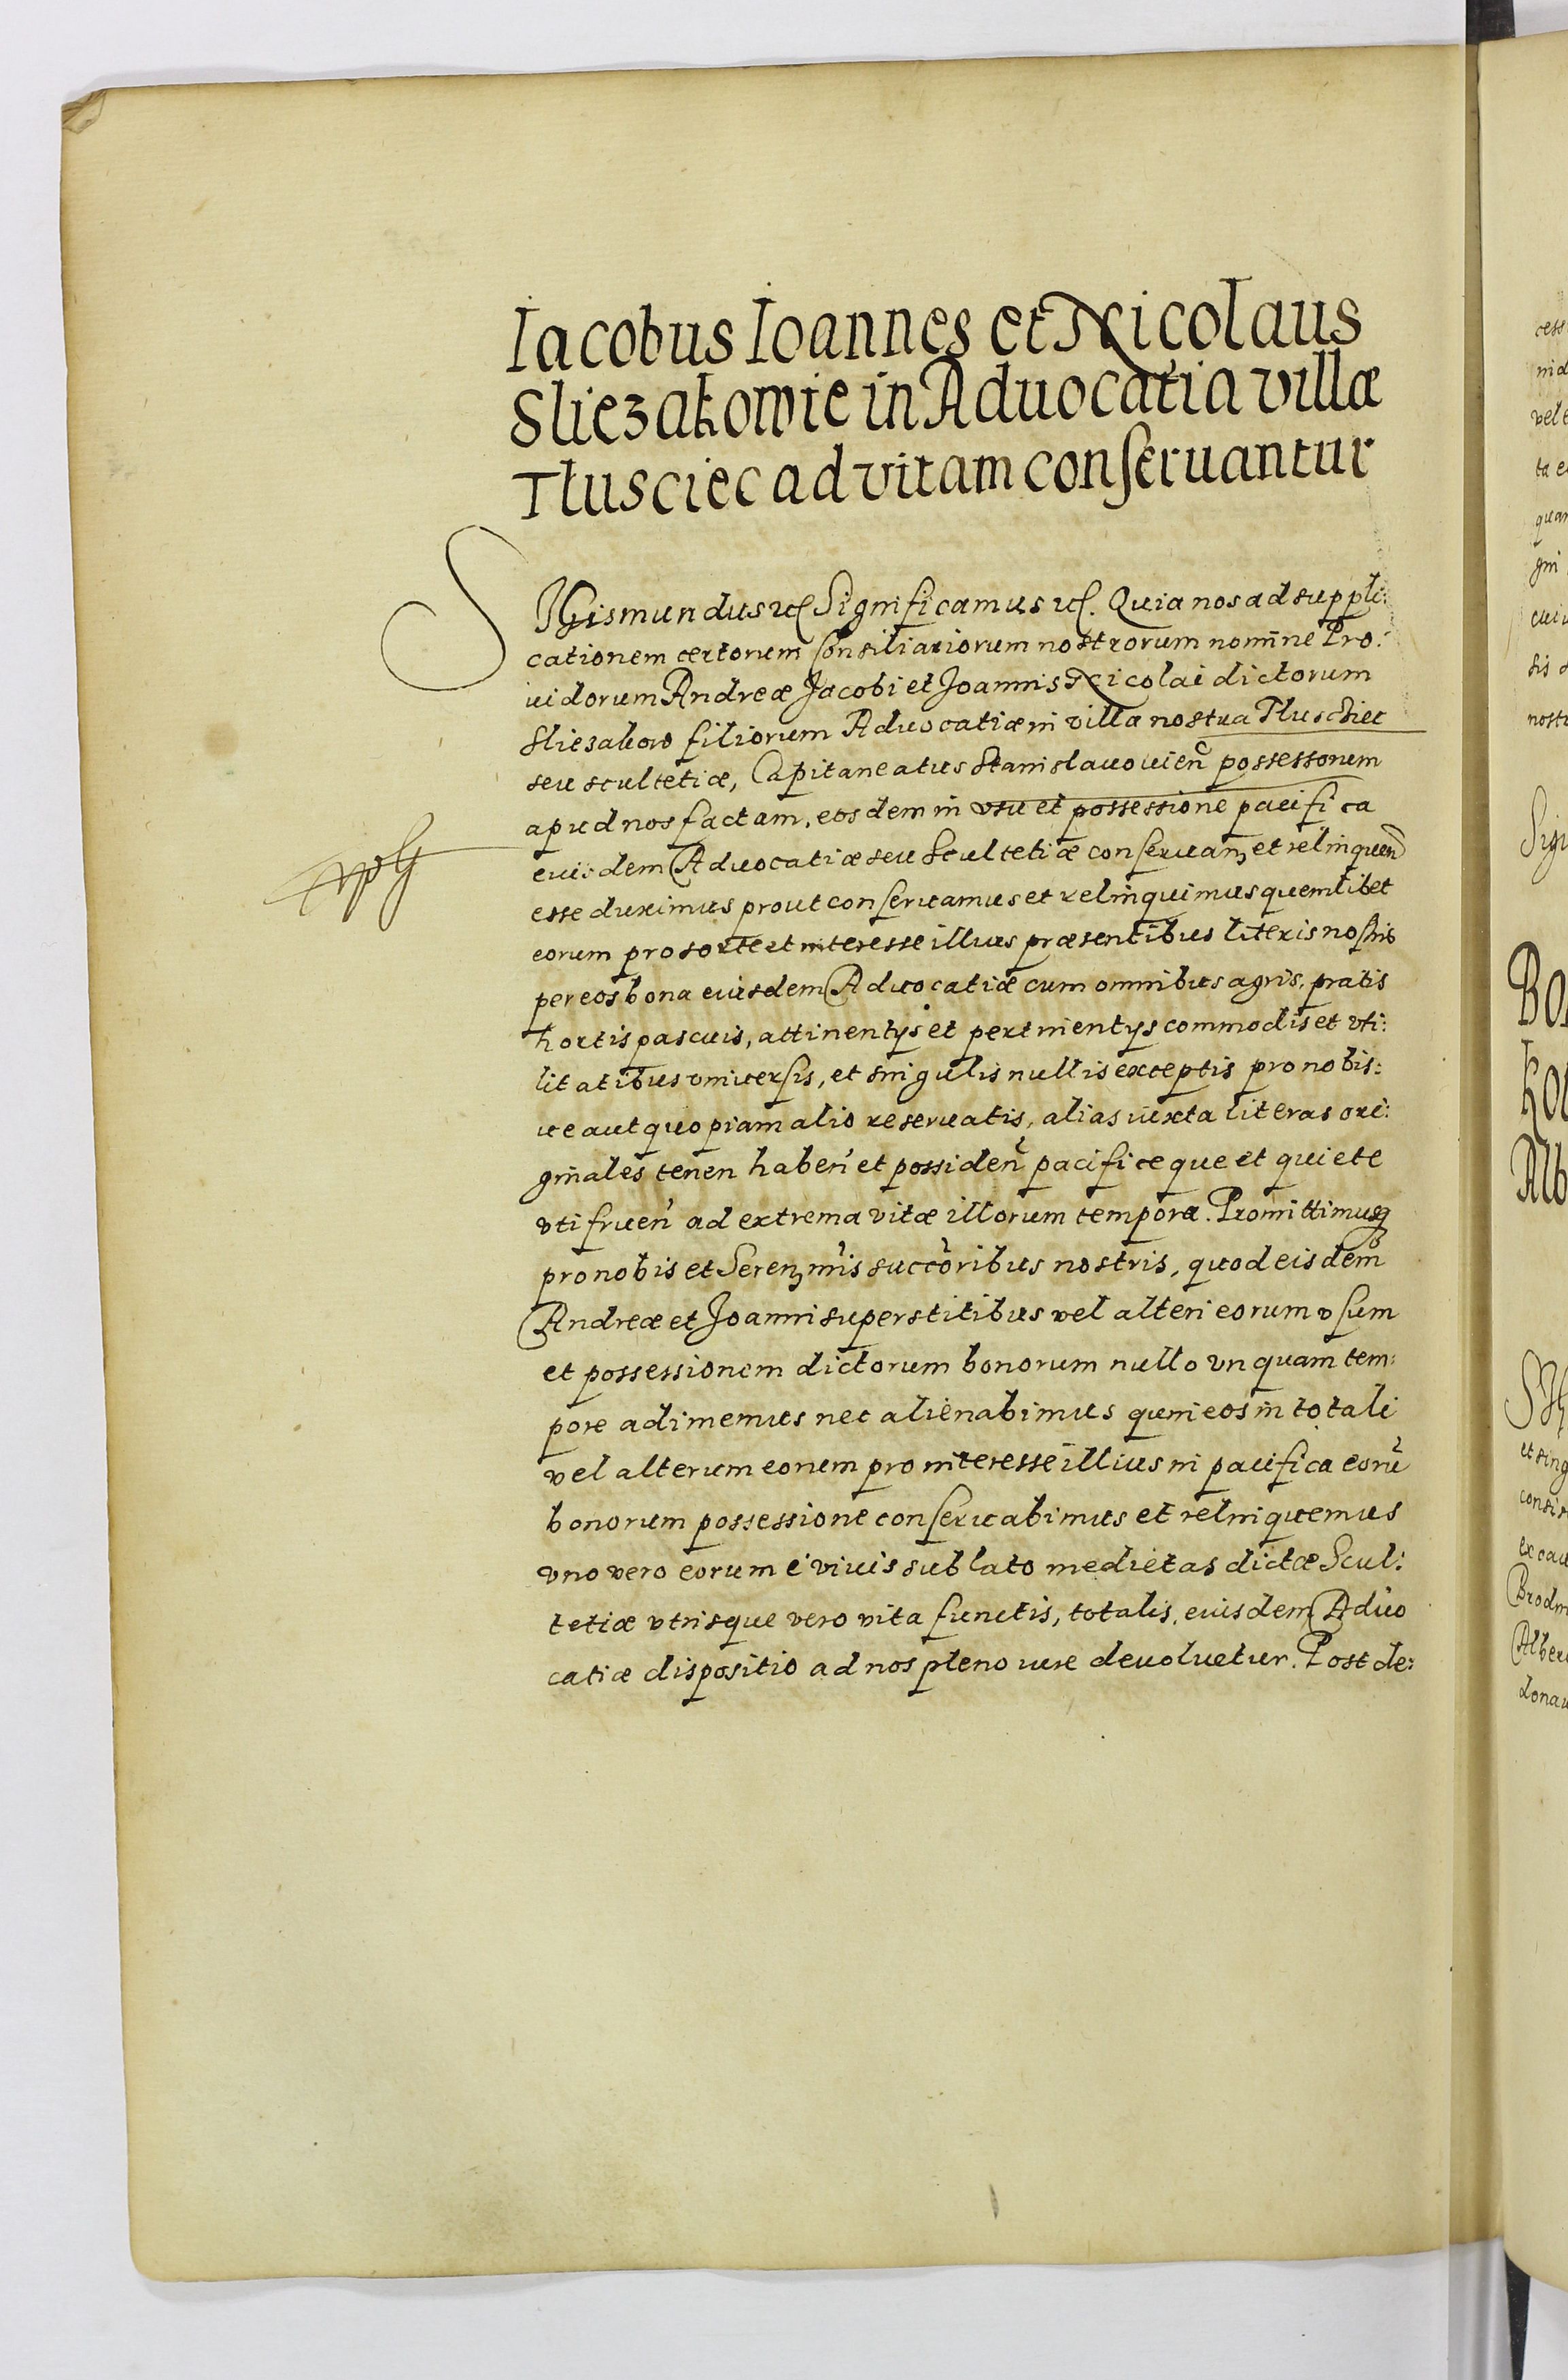 Iacobus Ioannes et Nicolaus
Sliezakowie in Aduocatia villæ
Tlusciec ad vitam conseruantur
SIGismundus etc Significamus etc. Quia nos ad suppli:
cationem certorum Consiliariorum nostrorum nomine Pro:
uidorum Andreæ Jacobi et Joannis Nicolai dictorum
Sliezakow filiorum Aduocatiæ in villa nostra Tluschiec
seu scultetiæ, Capitaneatus Stanislauouien possessorum
apud nos factam, eosdem in vsu et possessione pacifica
euisdem Aduocatiæ seu Scultetiæ conseruanz et relinquen
esse duximus prout conseruamus et relinquimus quemlibet
eorum pro sorte et interesse illius præsentibus literis nostris
per eos bona eiusdem Aduocatiæ cum omnibus agris, pratis
hortis pascuis, attinentÿs et pertinentÿs commodis et vti:
litatibus vniuersis, et singulis nullis exceptis pro nobis:
ue aut quopiam alio reseruatis, alias iuxta literas ori:
ginales tenen haben et possiden pacifice que et quiete
vti fruen ad extrema vitæ illorum tempora. Promittimusq
pro nobis et Serenzmis succoribus nostris, quod eisdem
Andreæ et Joanni superstitibus vel alteri eorum vsum
et possessionem dictorum bonorum nullo vnquam tem:
pore adimemus nec alienabimus quin eos in totali
vel alterum eorum pro interesse illius in pacifica eorū
bonorum possessione conseruabimus et relinquemus
vno vero eorum è viuis sublato medietas dictæ Scul:
tetiæ vtrisque vero vita functis, totalis, euisdem Aduo
catiæ dispositio ad nos pleno iure deuoluetur. Post de: